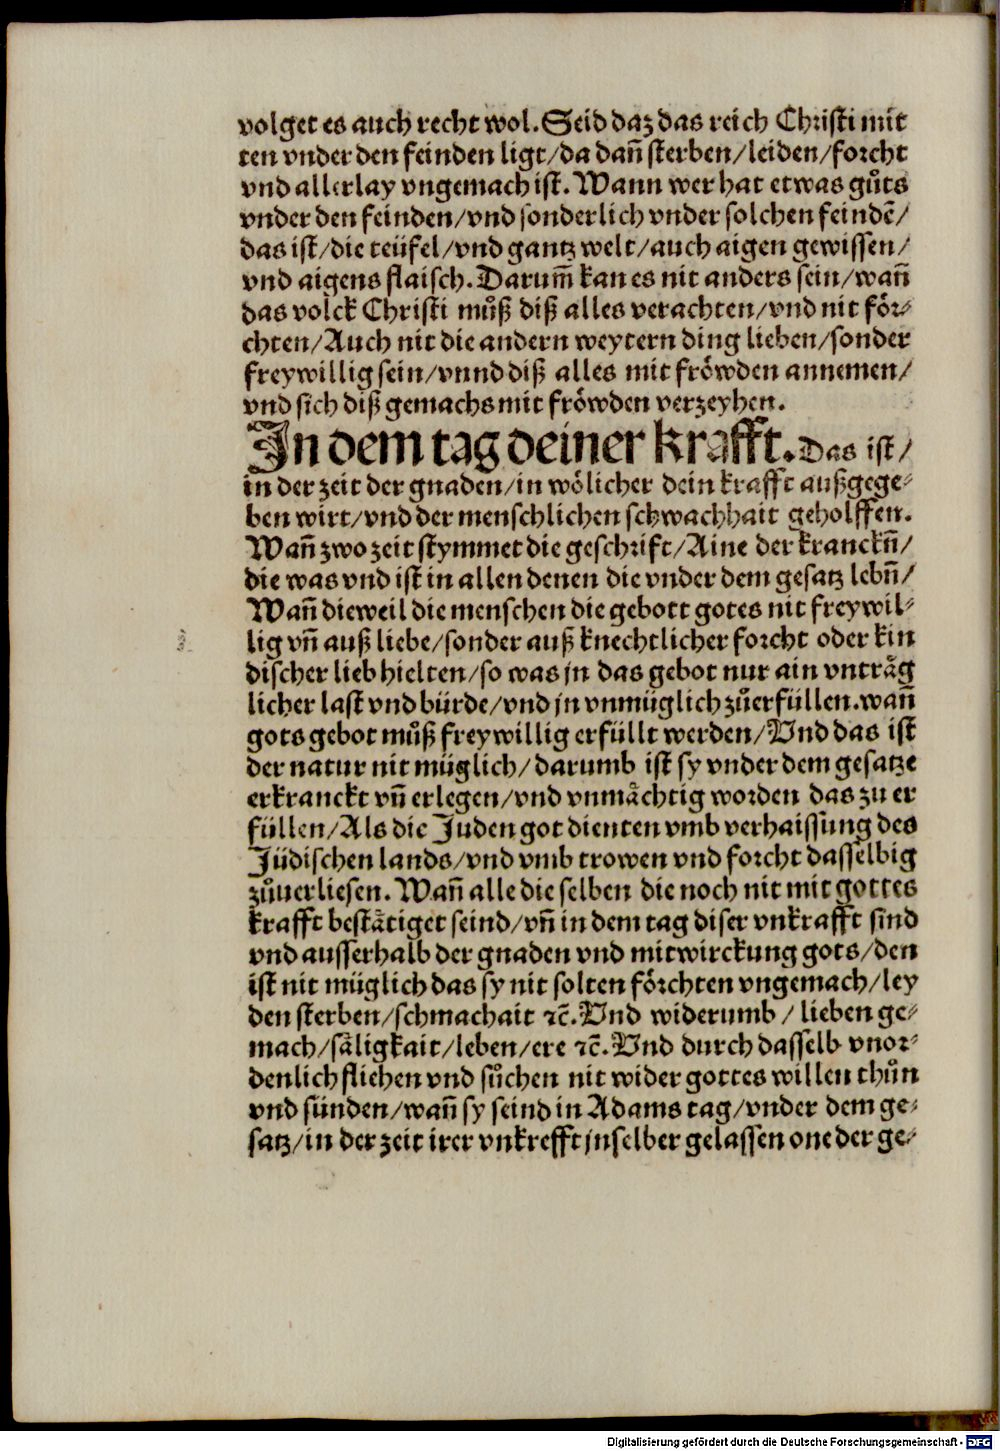 volget es auch recht wol. Seid daz das reich Christi mit
ten vnder den feinden ligt/da dañ sterben/leiden/forcht
vnd allerlay vngemach ist. Wann wer hat etwas gůts
vnder den feinden/vnd sonderlich vnder solchen feindē/
das ist/die teüfel/vnd gantz welt/auch aigen gewissen/
vnd aigens flaisch. Darum̃ kan es nit anders sein/wañ
das volck Christi můß diß alles verachten/vnd nit för⸗
chten/Auch nit die andern weytern ding lieben/sonder
freywillig sein/vnnd diß alles mit fröwden annemen/
vnd sich diß gemachs mit fröwden verzeyhen.
In dem tag deiner krafft. Das ist/
in der zeit der gnaden/in wölicher dein krafft außgege⸗
ben wirt/vnd der menschlichen schwachhait geholffen.
Wañ zwo zeit stymmet die geschrift/Aine der kranckñ/
die was vnd ist in allen denen die vnder dem gesatz lebñ/
Wañ dieweil die menschen die gebott gotes nit freywil⸗
lig vñ auß liebe/sonder auß knechtlicher forcht oder kin
discher lieb hielten/so was jn das gebot nur ain vnträg
licher last vnd bürde/vnd jn vnmüglich zůerfüllen. wañ
gots gebot můß freywillig erfüllt werden/Vnd das ist
der natur nit müglich/darumb ist sy vnder dem gesatze
erkranckt vñ erlegen/vnd vnmächtig worden das zu er
füllen/Als die Juden got dienten vmb verhaissung des
Jüdischen lands/vnd vmb trowen vnd forcht dasselbig
zůuerliesen. Wañ alle die selben die noch nit mit gottes
krafft bestätiget seind/vñ in dem tag diser vnkrafft sind
vnd ausserhalb der gnaden vnd mitwirckung gots/den
ist nit müglich das sy nit solten förchten vngemach/ley
den sterben/schmachait ⁊c̃. Vnd widerumb/lieben ge⸗
mach/säligkait/leben/ere ⁊c̃. Vnd durch dasselb vnor⸗
denlich fliehen vnd sůchen nit wider gottes willen thůn
vnd sünden/wañ sy seind in Adams tag/vnder dem ge⸗
satz/in der zeit irer vnkrefft jnselber gelassen one der ge⸗
Digitalisierung gefördert durch die Deutsche Forschungsgemeinschaft - DFG